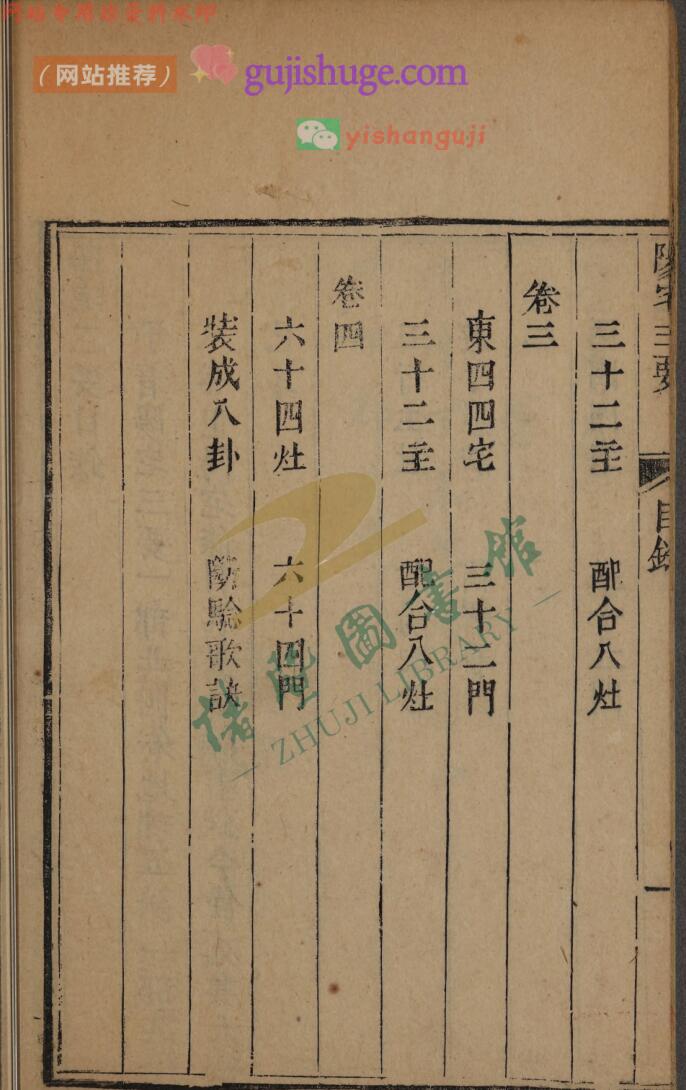 网站专用综变拆水印
（网站推荐） gujishuge.com
yishanguji
陽宅三要 目錄 一
三十二主 配合八灶
卷三
東四四宅 三十二門
三十二主 配合八灶
卷四
六十四灶 六十四門
裝成八卦 斷驗歌訣
諸暨圖書館
— ZHUJI LIBRARY —